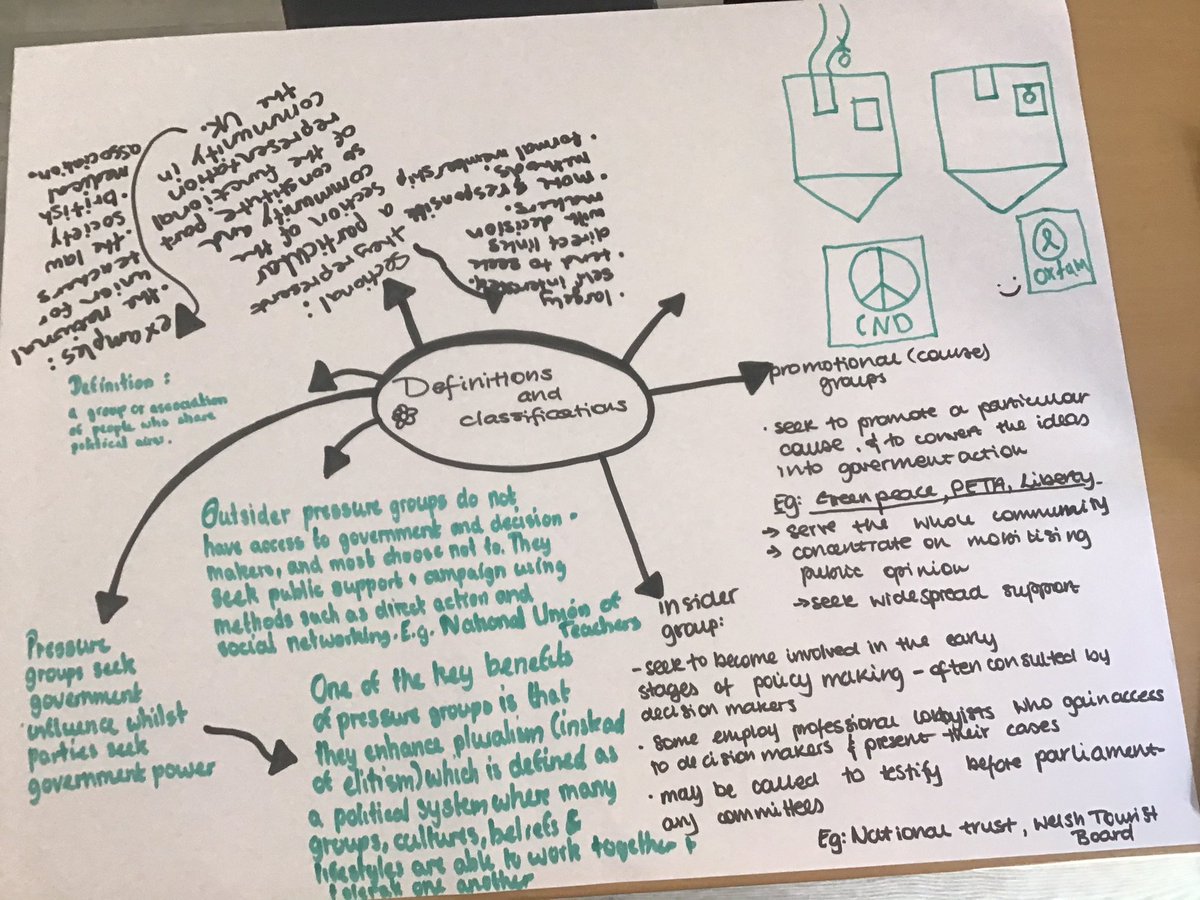 Definitions
and
classifications
Definition :
a group or association
of people who share
political aims.
sectional :
they represent
a particular
section of the
community and
so constitute part
of the functional
representation
community in
the UK.
examples :
• the national
union for
teachers
• the law
society
• british
medical
association.
• largely
self interest.
• tend to seek
direct links
with decision
makers.
• more responsible
methods.
• formal membership
CND
oxfam
promotional (cause)
groups
• seek to promote a particular
cause & to convert the ideas
into goverment action
Eg: Greenpeace, PETA, Liberty
→ serve the whole community
→ concentrate on mobilising
public opinion
→ seek widespread support
Insider
group:
- seek to become involved in the early
stages of policy making - often consulted by
decision makers
• some employ professional lobbyists who gain access
to decision makers & present their cases
• may be called to testify before parliament-
ary committees
Eg: National trust, Welsh Tourist
Board
Outsider pressure groups do not
have access to government and decision-
makers, and most choose not to. They
seek public support + campaign using
methods such as direct action and
social networking. E.g. National Union of
Teachers
Pressure
groups seek
government
influence whilst
parties seek
government power
One of the key benefits
of pressure groups is that
they enhance pluralism (instead
of elitism) which is defined as
a political system where many
groups, cultures, beliefs &
lifestyles are able to work together &
tolerate one another